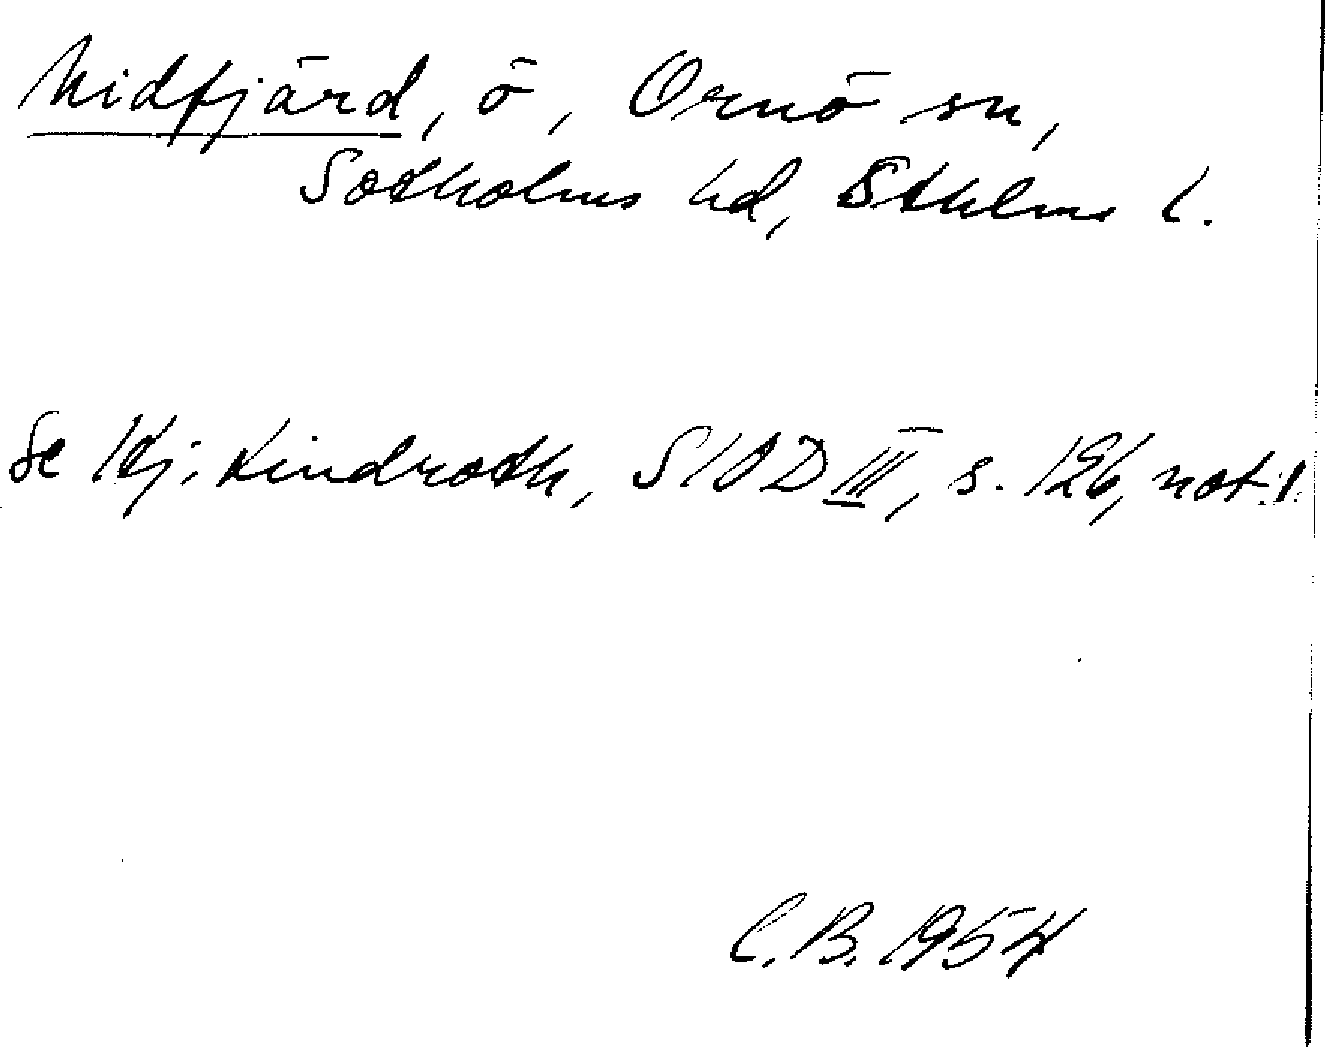 Midfjärd, ö, Ornö sn,
Sotholms hd, Sthlms l.
Se Hj. Lindroth, SIOD III, s. 126, not 1.
C.B. 1954